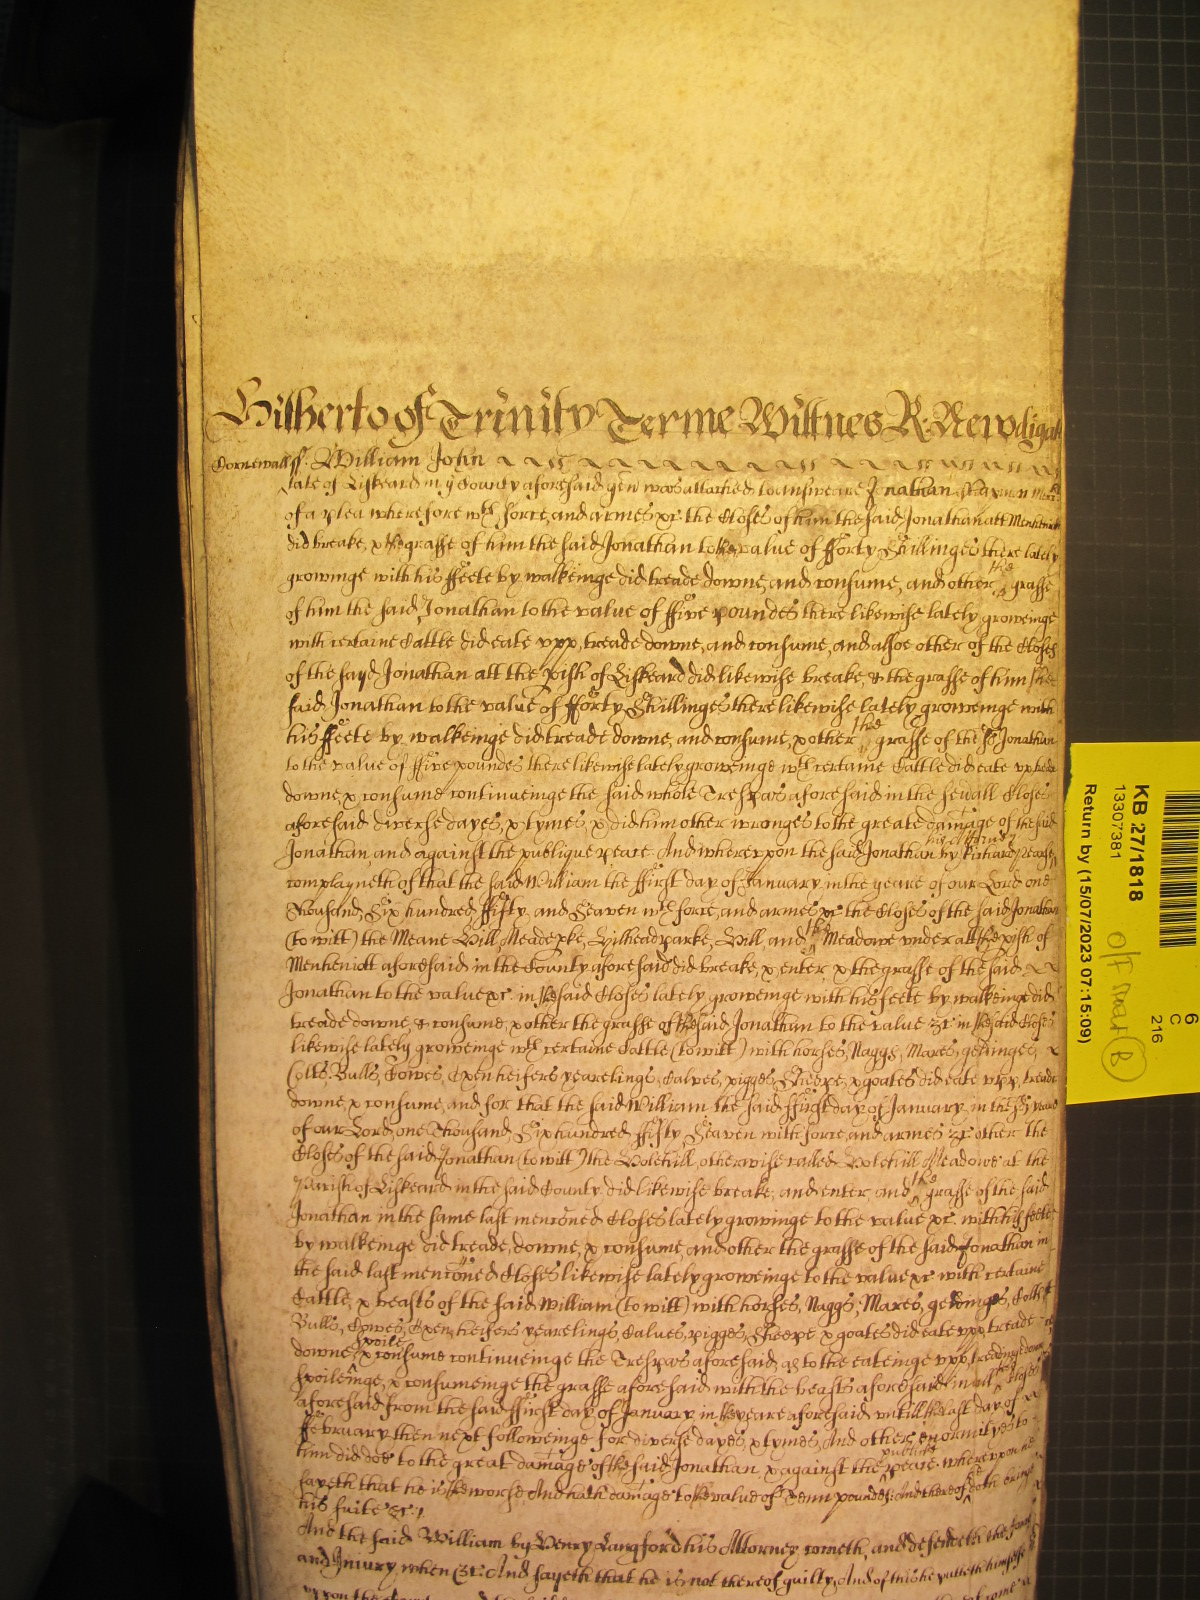 Hitherto of Trinity Terme Wittnes R. Newdigat
Cornewall ss. William John
late of Liskeard in ye County aforesaid gen was attached to answeare Jonathan
of a plea wherefore wth force, and armes &c. the Closes of him the said Jonathan att Menhenit
did breake, & the grasse of him the said Jonathan to the value of fforty Shillinges there lately
growinge with his ffeete by walkeinge did treade downe, and consume, and other the grasse
of him the said Jonathan to the value of ffive poundes there likewise lately groweinge
with certaine Cattle did eate upp, treade downe, and consume, and alsoe other of the Closes
of the sayd Jonathan att the pish of Liskeard did likewise breake, & the grasse of him the
said Jonathan to the value of fforty Shillinges there likewise lately groweinge with
his ffeete by walkeinge did treade downe, and consume, & other the grasse of the sd Jonathan
to the value of ffive poundes there likewise lately groweinge wth certaine Cattle did eate up treade
downe, & consume continueinge the said whole Trespas aforesaid in the sevall Closes
aforesaid diverse dayes, & tymes, & did him other wronges to the great damage of the said
Jonathan and against the publique peace. And whereupon the said Jonathan by Richard Pearse his Attorney
complayneth of that the said William the ffirst day of January in the yeare of our Lord one
Thousand, Six hundred, ffifty, and Seaven wth force, and armes &c the Closes of the said Jonathan
(to witt) the Meane Hill, Meade pke, Hilhead parke, Hill, and the Meadowe under att the pish of
Menheniott aforesaid in the County aforesaid did breake, & enter, & the grasse of the said
Jonathan to the value &c. in the said Closes lately groweinge with his feete by walkeinge did
treade downe, & consume, & other the grasse of the said Jonathan to the value &c in the said Closes
likewise lately groweinge wth certaine Cattle (to witt) with horses, Naggs, Mares, geldinges,
Colts, Bulls, Cowes, Oxen heifers yearelings, Calves, pigges, Sheepe, & goates did eate upp, treade
downe, & consume, and for that the said William the said ffirst day of January in the sd yeare
of our Lord, one Thousand, Six hundred, ffifty, Seaven with force, and armes &c other the
Closes of the said Jonathan (to witt) the Bolehill, otherwise called Bolehill Meadowe at the
Parish of Liskeard in the said County did likewise breake, and enter, and the grasse of the said
Jonathan in the same last menconed Closes lately growinge to the value &c. with his feete
by walkeinge did treade, downe, & consume, and other the grasse of the said Jonathan in
the said last menconed Closes likewise lately groweinge to the value &c with certaine
Cattle, & beasts of the said William (to witt) with horses, Naggs, Mares, geldinges, Colts
Bulls, Cowes, Oxen, heifers yearelings, Calves, pigges, Sheepe & goates did eate upp, treade
downe, spoile & consume continueinge the Trespas aforesaid, as to the eateinge upp, treadinge downe
spoileinge, & consumeinge the grasse aforesaid with the beasts aforesaid in all the Closes
aforesaid from the said ffirst day of January in the yeare aforesaid untill the last day of
ffebruary then next followeinge for diverse dayes, & tymes, And other enormityes to
him did doe to the great damage of the said Jonathan & against the publique peace. whereupon he
sayeth that he is the worse And hath damage to the value of Tenn poundes: And thereof he doth bringe
his suite &c.
And the said William by Henry Langford his Attorney cometh, and defendeth the force
and Injury when &c. And sayeth that he is not thereof guilty, And of this he putteth himselfe
upon the
KB 27/1818
13307381
Return by (15/07/2023 07:15:09)
6
C
216
B